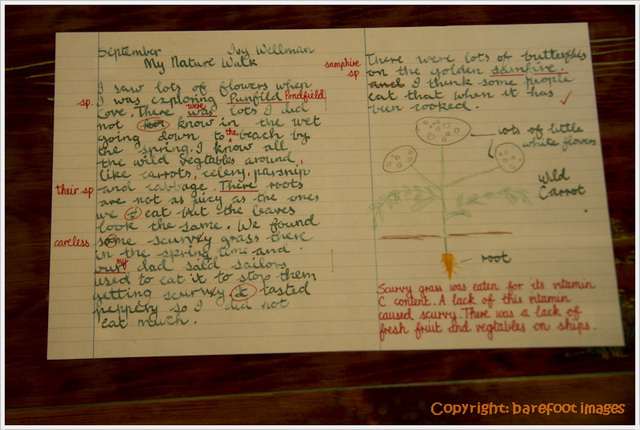 September Ivy Wellman
My Nature Walk
I saw lots of flowers when
sp. I was exploring Punfild Pondfield
Cove. There was were lots I did
not know in the wet
going down to the beach by
the spring. I know all
the wild vegtables around,
like carrots, celery, parsnip
their sp and cabbage. There roots
are not as juicy as the ones
we eat but the leaves
look the same. We found
careless some scurvy grass there
in the spring time and
my dad said sailors
used to eat it to stop them
getting scurvy, it tasted
peppery so I did not
eat much.
samphire
sp
There were lots of butterflies
on the golden samfire
and I think some people
eat that when it has
been cooked.
lots of little
white flowers
Wild
Carrot
root
Scurvy grass was eaten for its vitamin
C content. A lack of this vitamin
caused scurvy. There was a lack of
fresh fruit and vegtables on ships.
Copyright: barefoot images